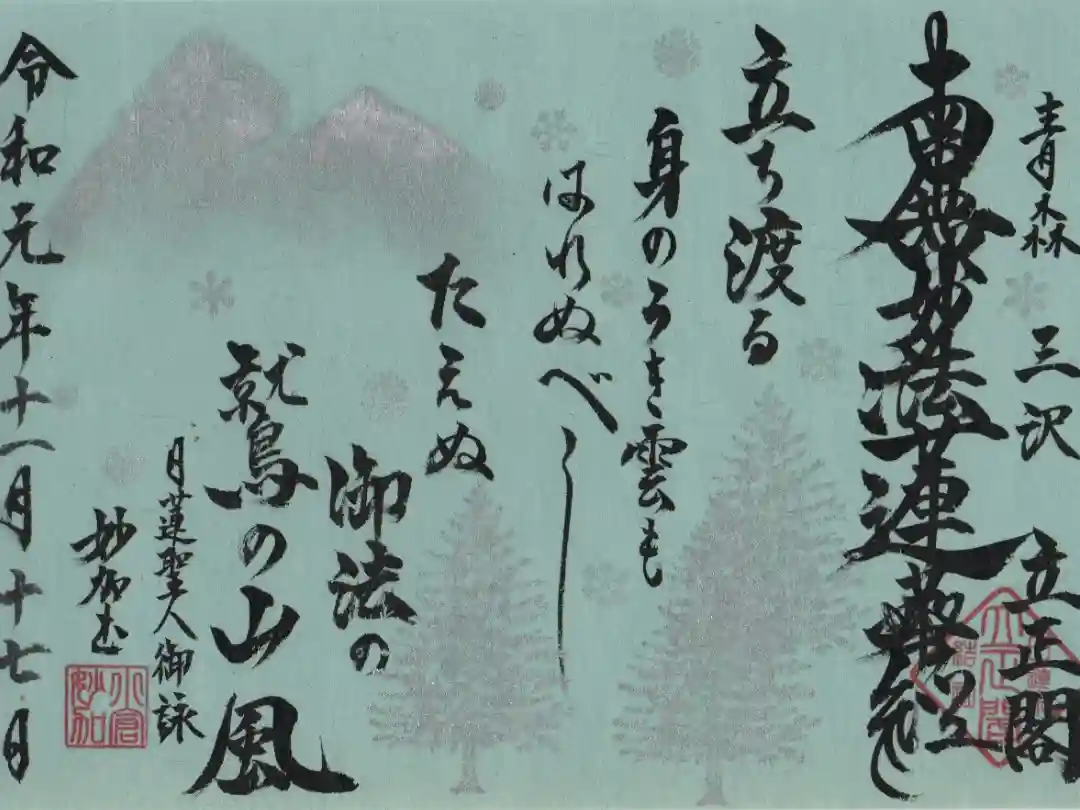 青森 三沢 立正閣
南無妙法蓮華経
立ち渡る
身のうき雲も
はれぬべし
たえぬ
御法の
鷲の山風
日蓮聖人御詠
妙加书
小倉
妙加
令和元年十一月十七日